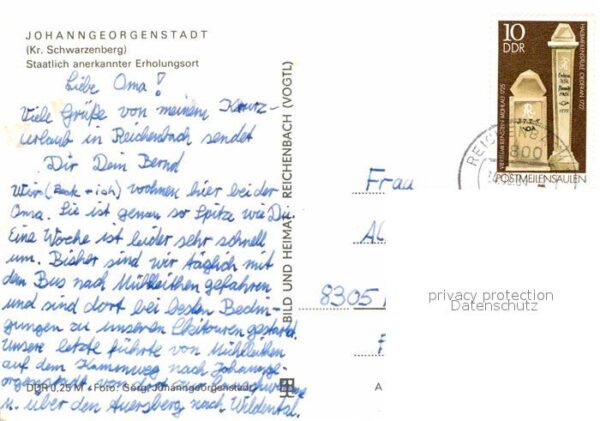 JOHANNGEORGENSTADT
(Kr. Schwarzenberg)
Staatlich anerkannter Erholungsort
Liebe Oma!
Viele Grüße von meinem Kurz-
urlaub in Reichenbach sendet
Dir Dein Bernd
Wir (Beate + ich) wohnen hier bei der
Oma. Sie ist genau so Spitze wie Du.
Eine Woche ist leider sehr schnell
um. Bisher sind wir täglich mit
dem Bus nach Mühlleithen gefahren
und sind dort bei besten Bedin-
gungen zu unseren Skitouren gestartet.
Unsere letzte führte von Mühlleithen
auf dem Kammweg nach Johannge-
orgenstadt
u. über den Auersberg nach Wildental.
DDR 0,25 M · Foto: Görg, Johanngeorgenstadt
BILD UND HEIMAT · REICHENBACH (VOGTL)
10
DDR
VIERTELMEILENSTEIN MÜHLAU 1725
HALBMEILENSÄULE OEDERAN 1722
POSTMEILENSÄULEN
Frau
8305
privacy protection
Datenschutz
A